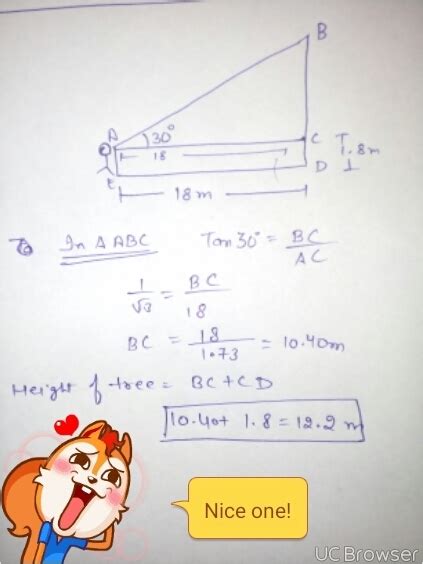 B
A
30°
18
C
1.8m
D
E
18m
In Δ ABC
Tan 30° = BC/AC
1/√3 = BC/18
BC = 18/1.73 = 10.40m
Height of tree = BC + CD
10.40+ 1.8 = 12.2 m
Nice one!
UC Browser